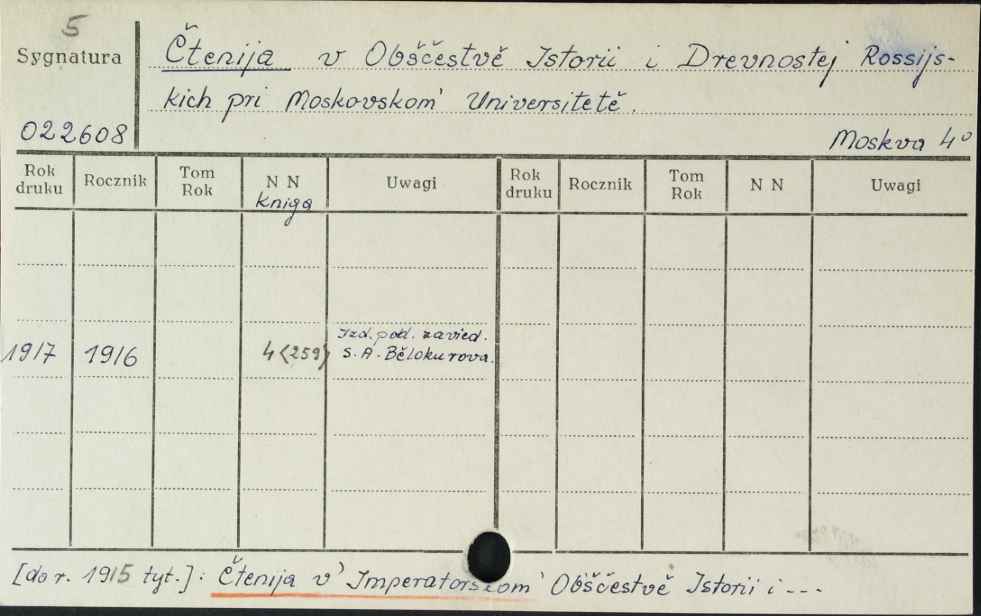 5
Sygnatura
Čtenija v Obščestvě Istorii i Drevnostej Rossijs-
kich pri Moskovskom' Universitetě.
022608
Moskva 4°
Rok druku Rocznik Tom Rok N N kniga Uwagi Rok druku Rocznik Tom Rok N N Uwagi
Izd. pod. zavied.
1917 1916 4(259) S. A. Bělokurova.
[do r. 1915 tyt.]: Čtenija v' Imperatorskom' Obščestvě Istorii i ---